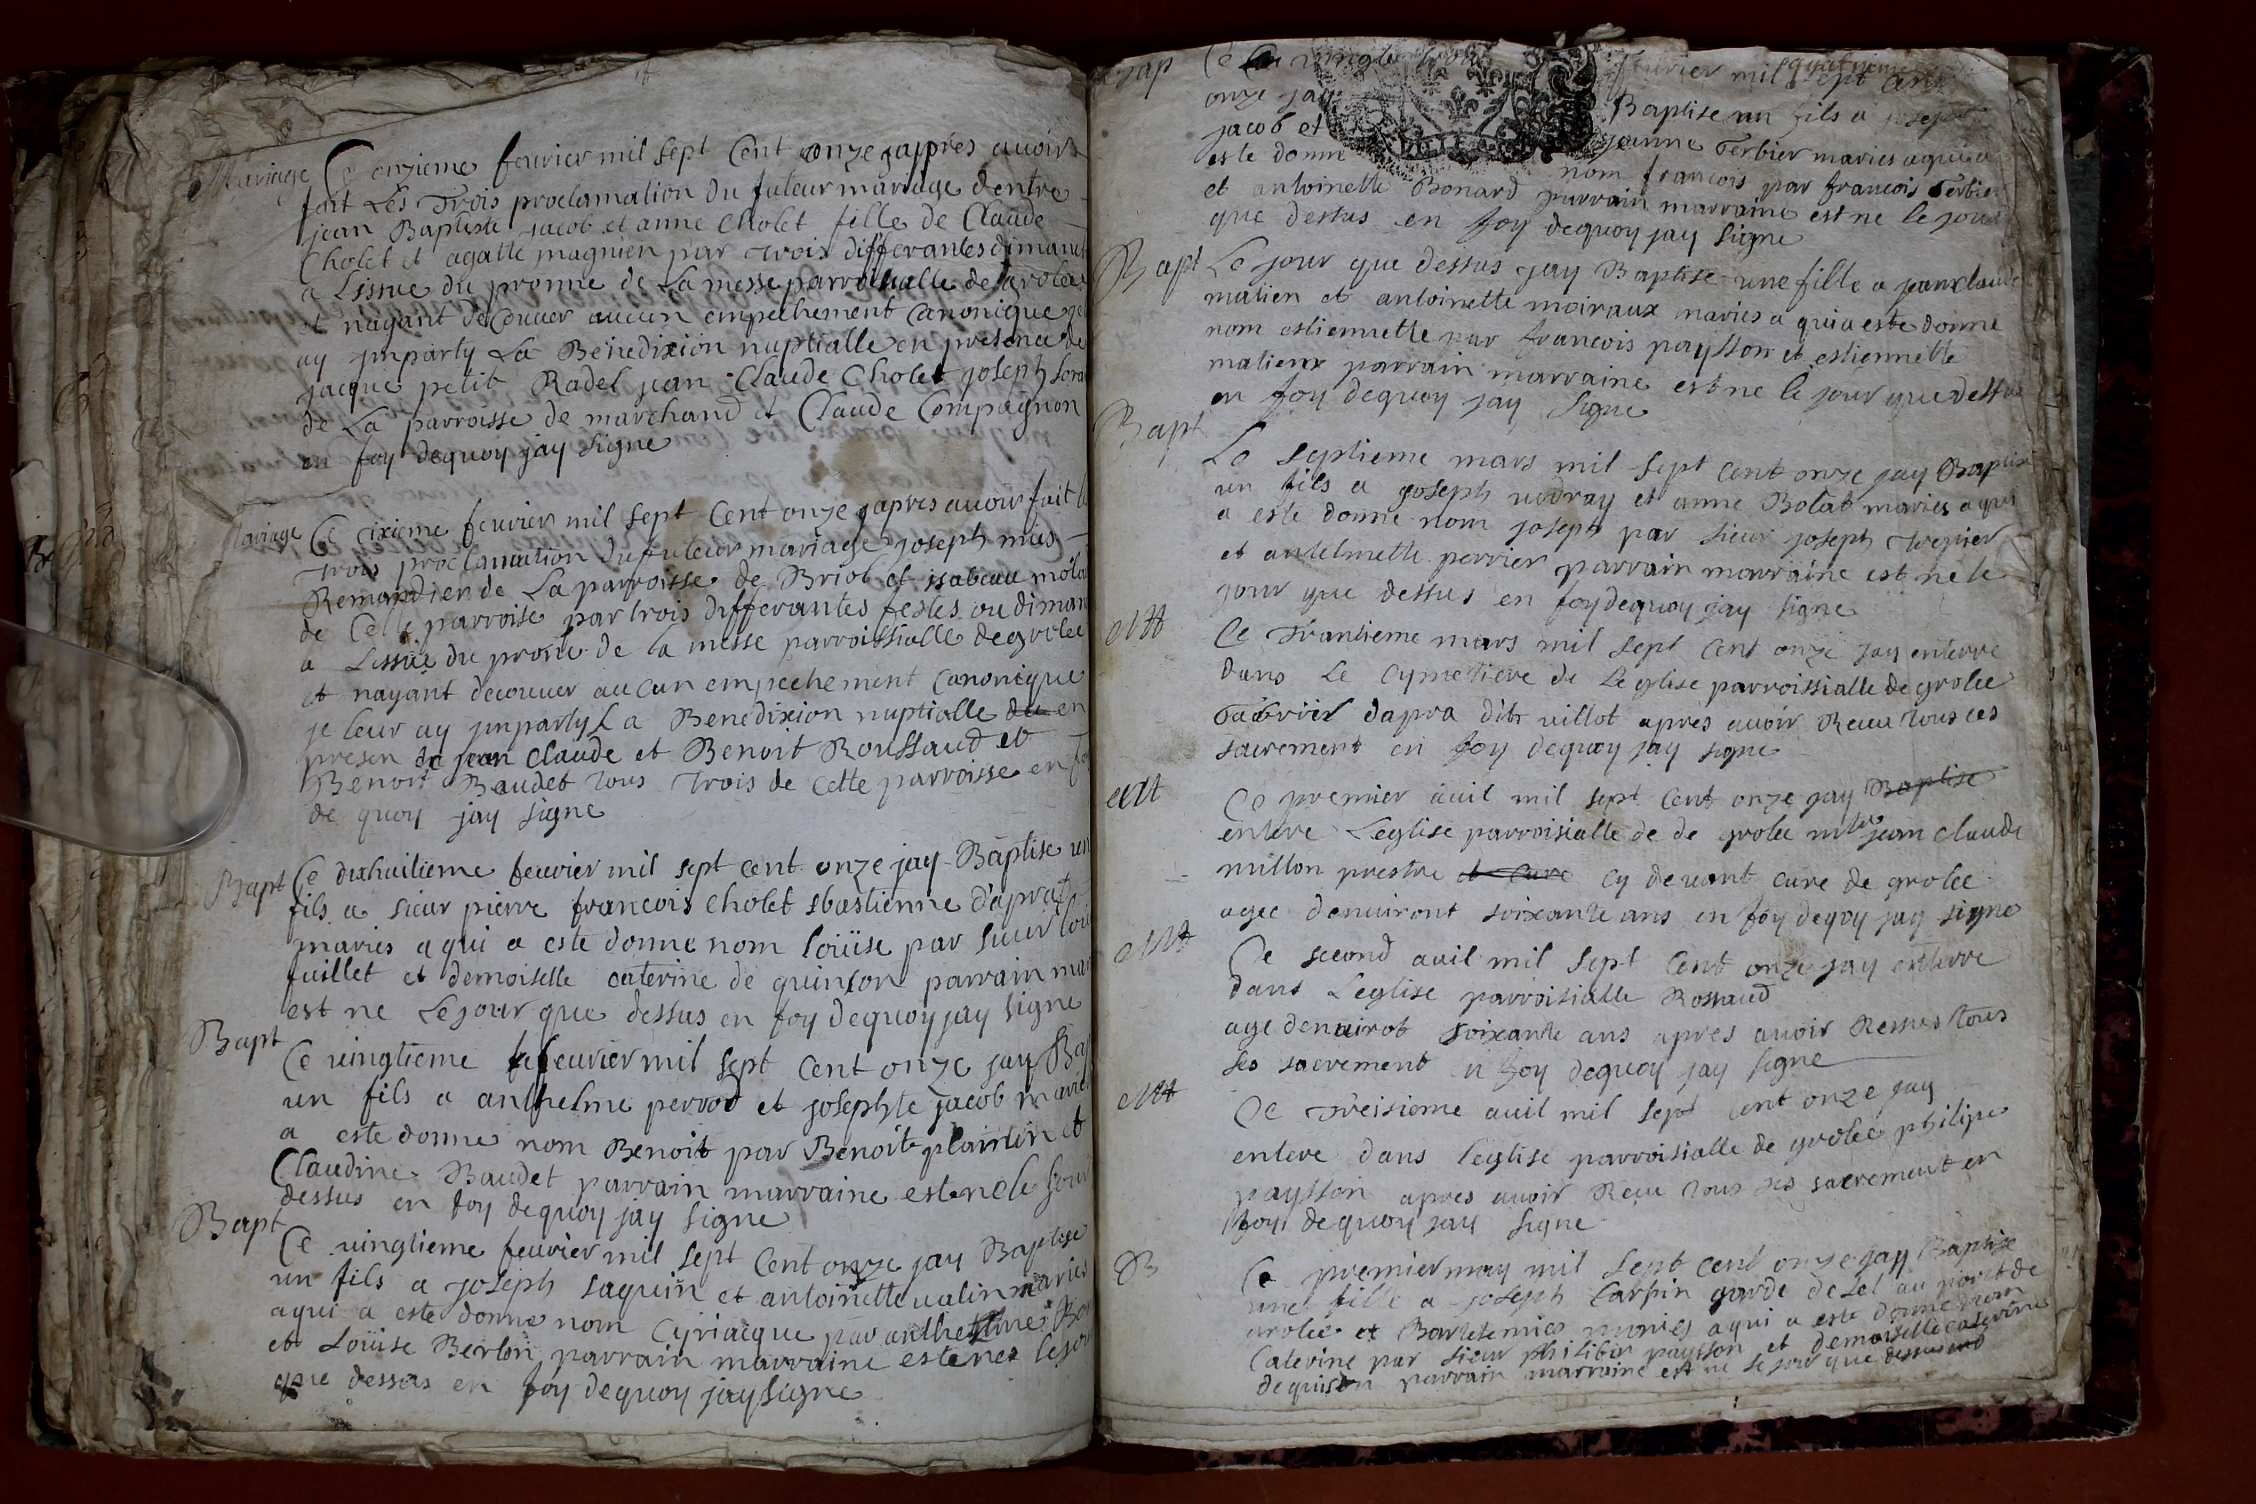 Mariage Ce onzieme feurier mil sept Cent onze japprés auoir
fait Les Trois proclamation du futeur mariage dentre
jean Baptiste jacob et anne Cholet fille de Claude
Cholet et agatte magnien par trois differantes dimanc
a Lissue du pronne de La messe parroissialle de grolee
et nayant decouuer aucun empechement Canonique je
ay jmparty La Benedixion nuptialle en presence de
jacque petit Radel jean Claude Cholet joseph
de La parroisse de marchand et Claude Compagnon
en foy dequoy jay signe
Mariage Ce sixieme feurier mil sept Cent onze japres auoir fait le
trois proclamation du futeur mariage joseph
de La parroisse de Briob et jsabeau
de Cette parroise par trois differantes festes ou diman
a Lissue du prosne de la messe parroissialle de grolee
et nayant decouuer aucun empechement Canonique
je leur ay jmparty La Benedixion nuptialle du en
presen de jean Claude et Benoit Roussaud et
Benoit Baudet tous trois de cette parroisse en fo
de quoy jay signe
Bapt Ce dixhuitieme feurier mil sept cent onze jay Baptise un
fils a sieur pierre francois Cholet sbastienne dapra
maries a qui a este donne nom loüise par sieur loui
fuillet et demoiselle caterine de quinson parrain mar
est ne Le jour que dessus en foy dequoy jay signe
Bapt
Ce uingtieme feurier mil sept cent onze jay Ba
un fils a anthelme perrod et josephte jacob marie
a este donne nom Benoit par Benoit plantin et
Claudine Baudet parrain marraine est ne le jour
dessus en foy dequoy jay signe
Bapt
Ce uingtieme feurier mil sept Cent onze jay Baptise
un fils a joseph saquin et antoinette ualin maries
aqui a este donne nom Cyriacque par anthelme Bon
et Loüise Berlon parrain marraine est ne le jour
que dessus en foy dequoy jay signe
Bap Ce uingt quatrieme feurier mil sept Cent
onze jay Baptise un fils a joseph
jacob et jeanne Terbier maries aqui a
este donne nom francois par francois Terbier
et antoinette Bonard parrain marraine est ne le jour
que dessus en foy dequoy jay signe
Bapt Le jour que dessus jay Baptise une fille a jeanclaude
matien et antoinette moiraux maries a qui a este donne
nom estiennette par francois paysson et estiennette
matieux parrain marraine est ne le jour que dessus
en foy dequoy jay signe
Bapt
Le septieme mars mil sept cent onze jay Baptise
un fils a joseph et anne Bolat maries a qui
a este donne nom joseph par sieur joseph
et antelmette perrier parrain marraine est ne le
jour que dessus en foy dequoy jay signe
Ce Trantieme mars mil sept Cent onze jay enterre
dans Le Cymetiere de Leglise parroissialle de grolee
dapra dit uillot apres auoir Receu tous ces
sacrement en foy dequoy jay signe
Ce premier auil mil sept Cent onze jay Baptise
entere Leglise parroisialle de de grolee jean claude
millon prestre et Cure cy deuant cure de grolee
agee denuiront soixante ans en foy dequoy jay signe
Ce second auil mil sept Cent onze jay enterre
dans Leglise parroisialle Rossaud
age denuirot soixante ans apres auoir Ressus tous
ses sacrement en foy dequoy jay signe
Ce Treisieme auil mil sept cent onze jay
entere dans leglise parroisialle de grolee philipe
paysson apres auoir Receu tous ses sacrement en
foy dequoy jay signe
B
Ce premier may mil sept Cent onze jay Baptise
une fille a joseph Carpin garde de sel au port de
grolee et maries aqui a este donne nom
Caterine par sieur philibir paysson et demoiselle caterine
dequison parrain marraine est ne le jour que dessus